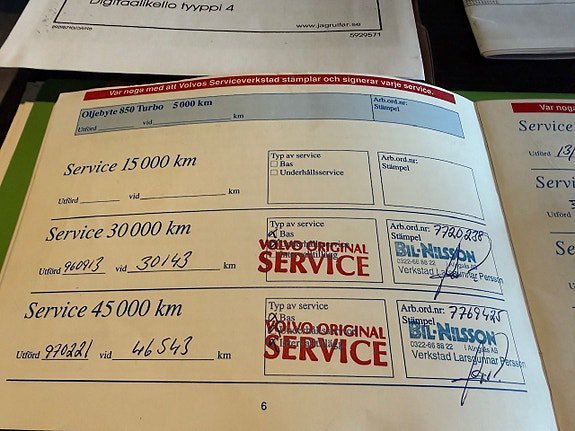 Digitaalikello tyyppi 4
www.jagrullar.se
5929571
Var noga med att Volvos Serviceverkstad stamplar och signerar varje service.
Oljebyte 850 Turbo 5 000 km
Utförd vid km
Arb.ord.nr:
Stämpel
Service 15 000 km
Utförd vid km
Typ av service
Bas
Underhållsservice
Arb.ord.nr:
Stämpel
Service 30 000 km
Utförd 960913 vid 30143 km
Typ av service
Bas
VOLVO ORIGINAL
SERVICE
Arb.ord.nr: 7720238
Stämpel
BIL-NILSSON
0322-66 88 22 i Alingsås AB
Verkstad Larsgunnar Persson
Service 45 000 km
Utförd 970221 vid 46543 km
Typ av service
Bas
Underhållsservice
VOLVO ORIGINAL
SERVICE
Arb.ord.nr: 7769425
Stämpel
BIL-NILSSON
0322-66 88 22 i Alingsås AB
Verkstad Larsgunnar Persson
6
Var noga
Service
Utförd 13/
Servi
Utförd
Se